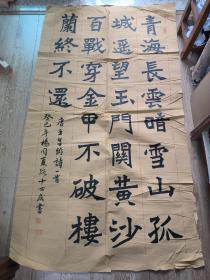 青海長雲暗雪山孤
城遥望玉門關黄沙
百戰穿金甲不破樓
蘭終不還
唐王昌齡詩一首
癸巳年楊同夏十歲書